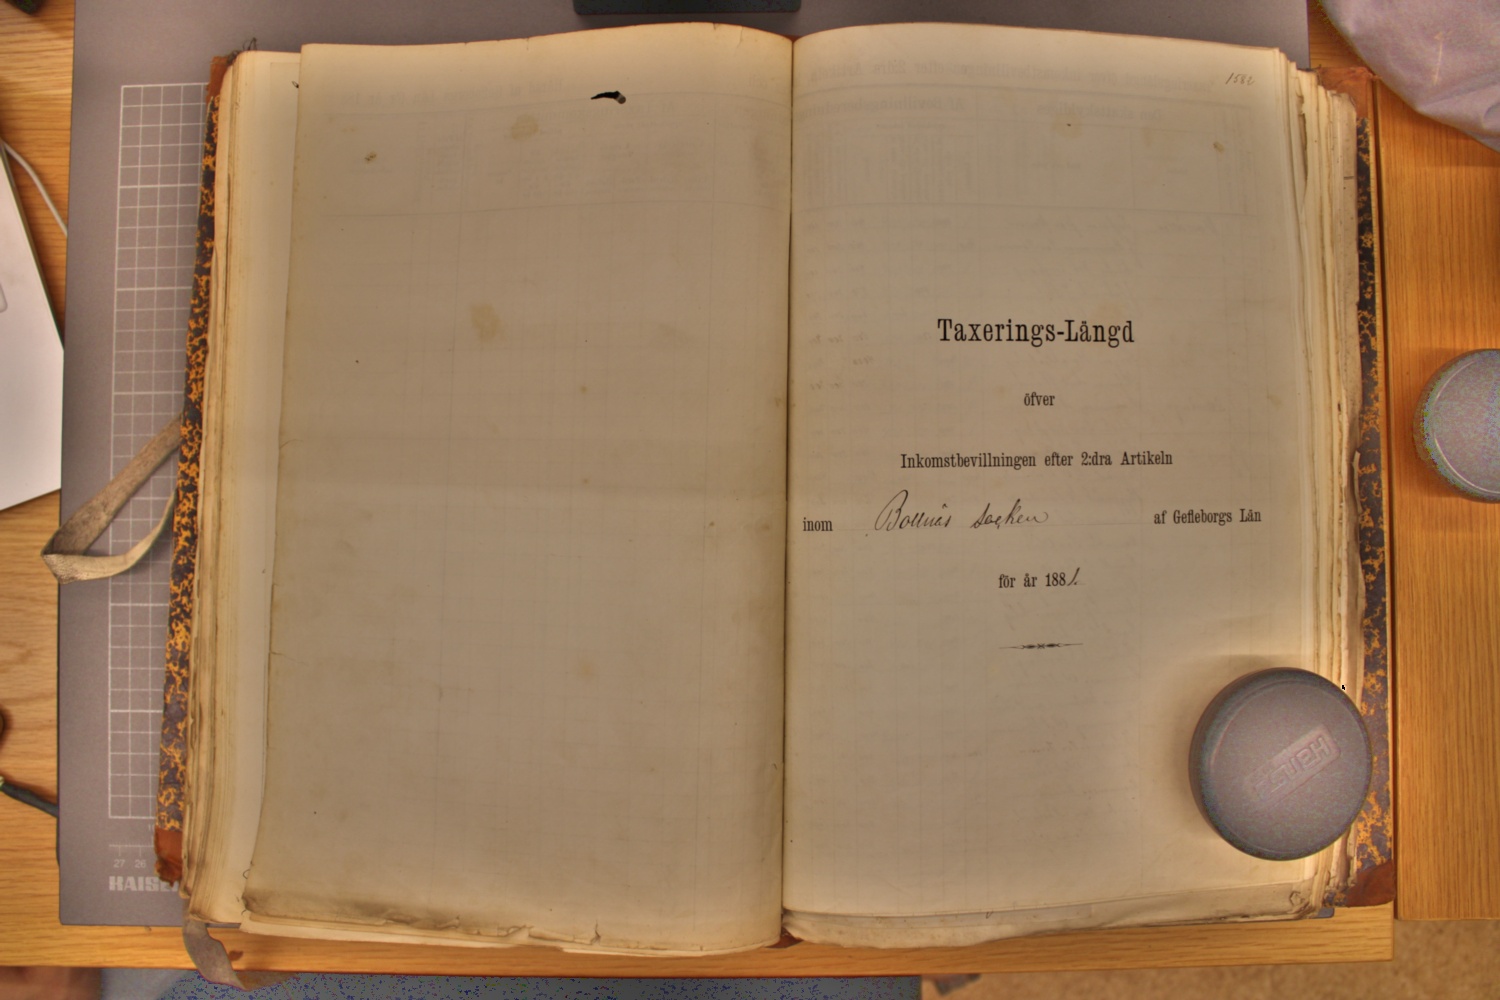 158
Taxerings-Längd
öfver
Inkomstbevillningen efter 2:dra Artikeln
inom Bollnäs socken af Gefleborgs Län
för år 1881.
27 26
HAISE
HAISER